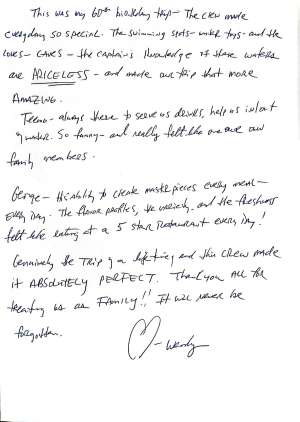 This was my 60th birthday trip - The crew made
everyday so special. The swimming spots - water toys - and the
coves - caves - the captain's knowledge of these waters
are PRICELESS - and made our trip that more
AMAZING.
Teano - always there to serve us drinks, help us in/out
of water. So funny - and really felt like one our own
family members.
George - His ability to create masterpieces every meal -
every day. The flavor profiles, the variety, and the freshness
felt like eating at a 5 star Restaurant every day!
Genuinely the Trip of a lifetime and this crew made
it ABSOLUTELY PERFECT. Thank you ALL for
treating us as FAMILY!! It will never be
forgotten.
- Wendy